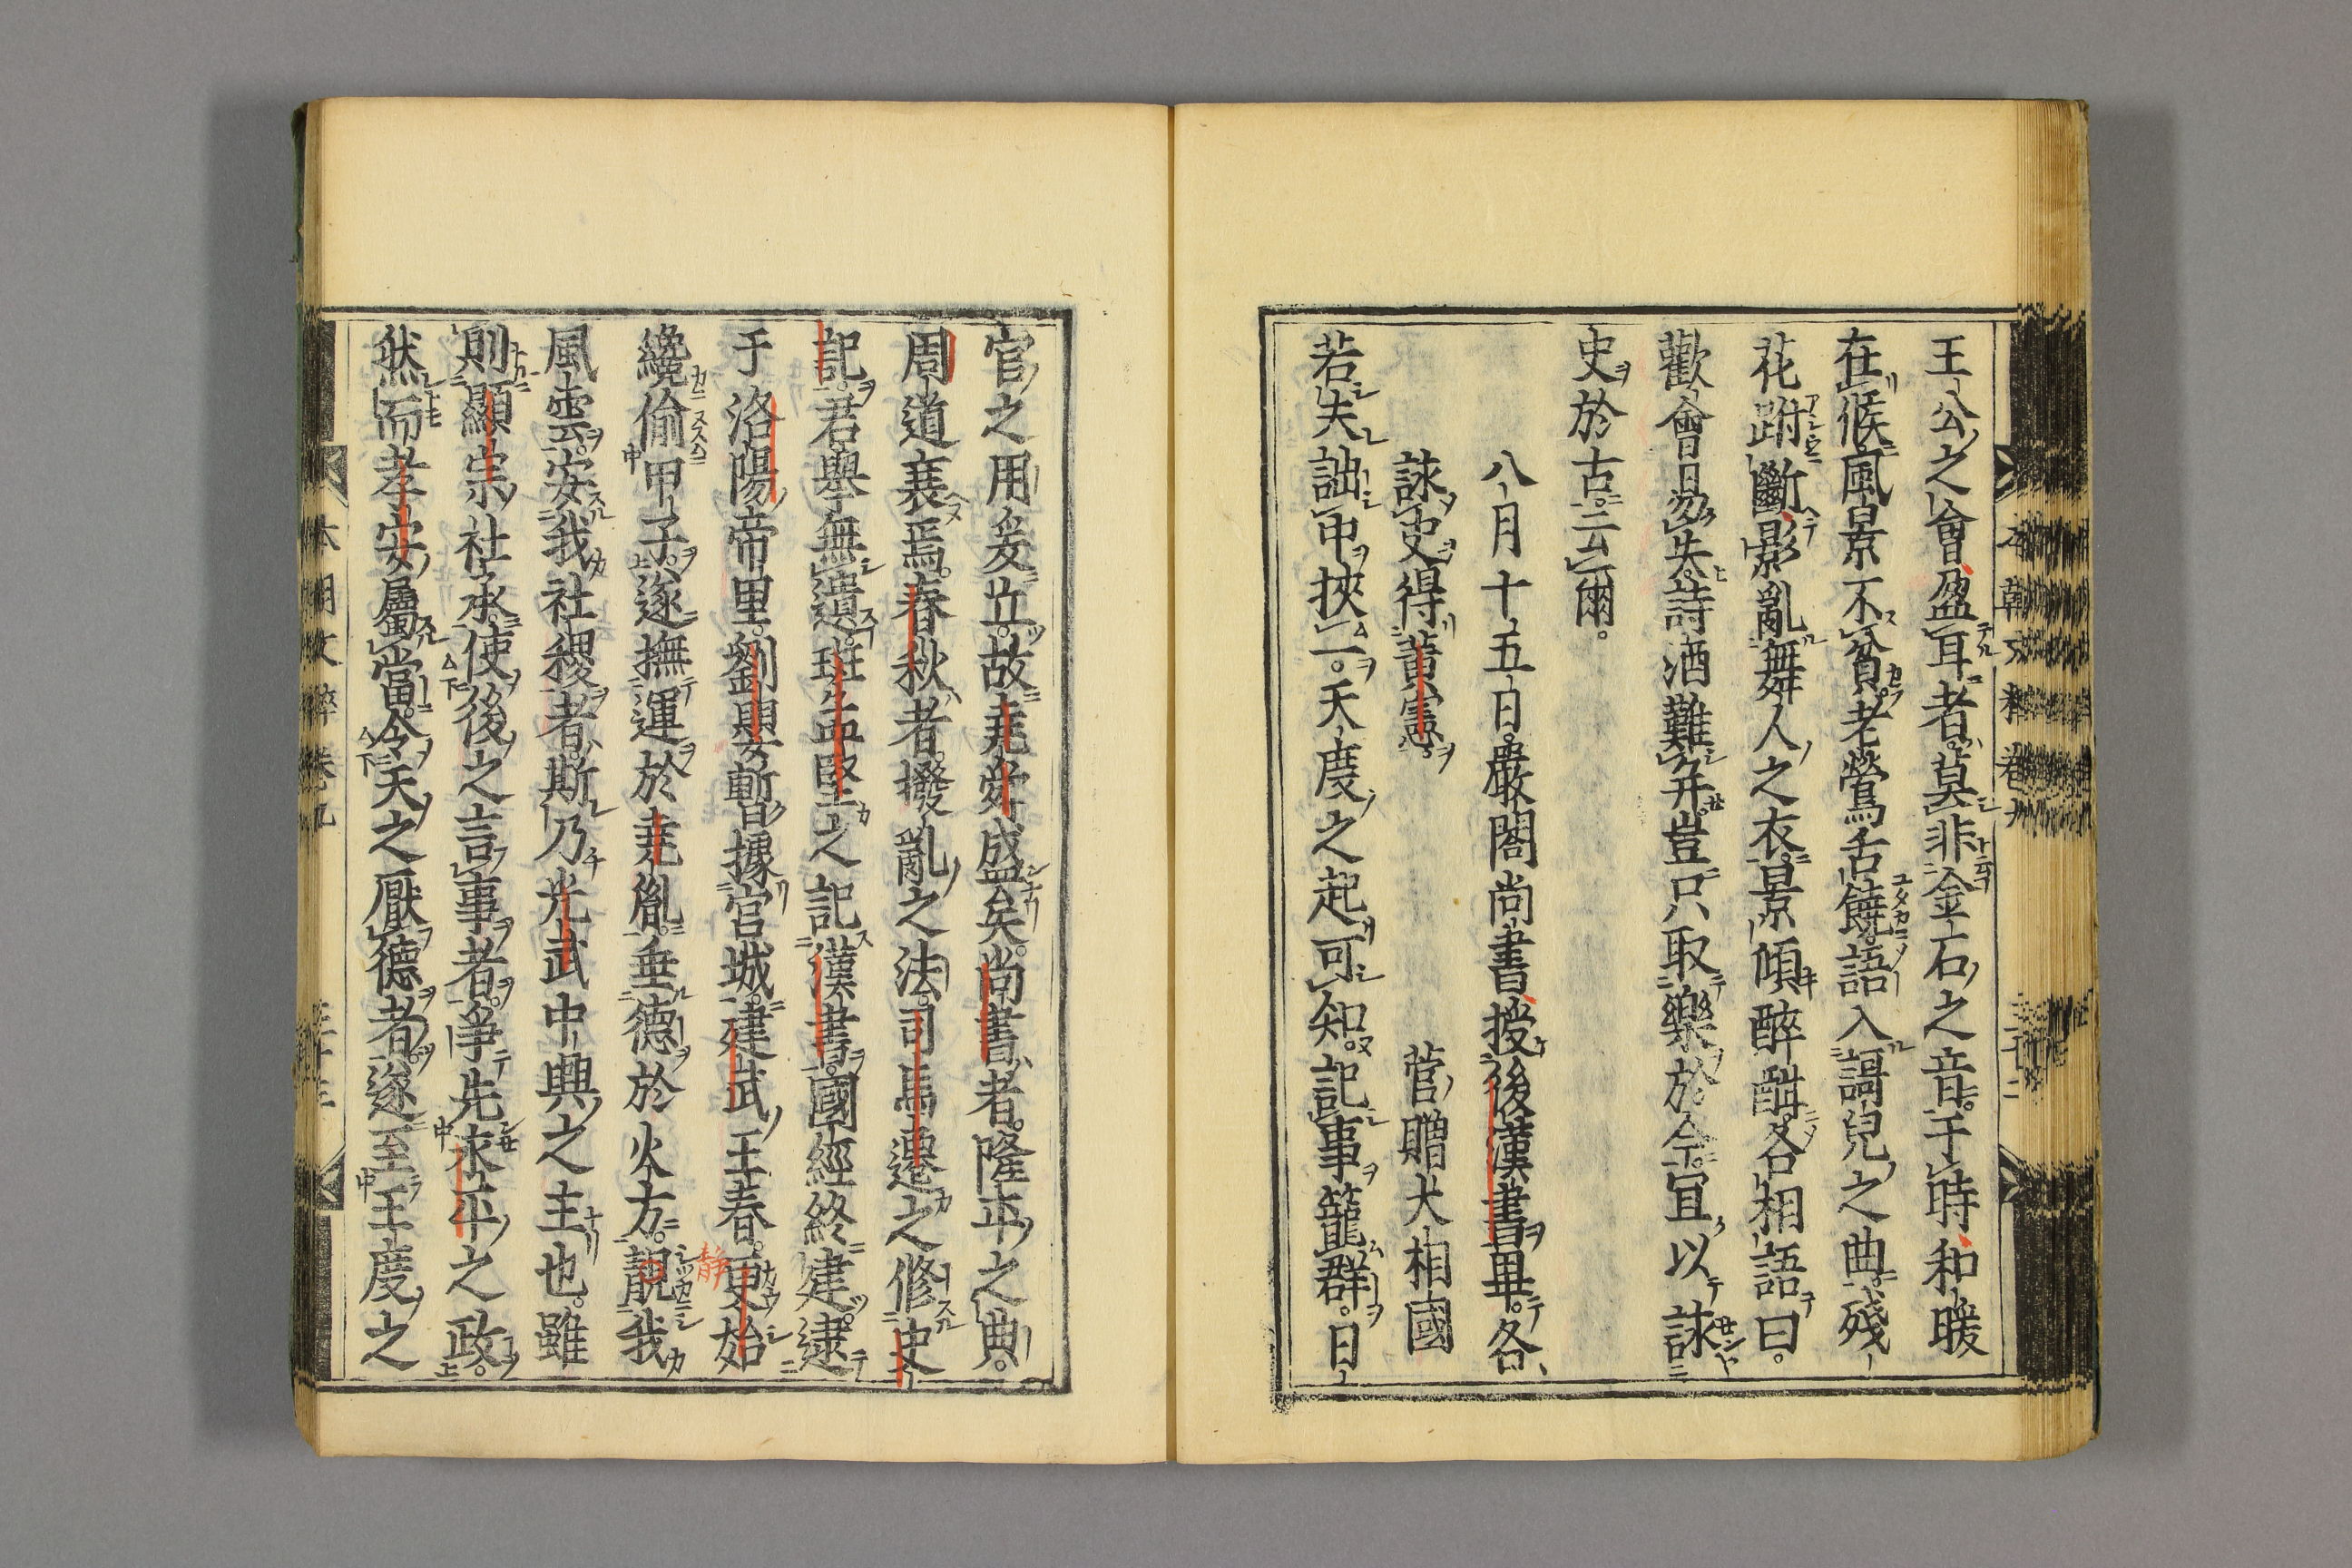 王公之會盈耳者莫非金石之音于時和暖
在候風景不貧老鶯舌饒語入謌兒之曲殘
花跗斷影亂舞人之衣景傾醉酣各相語曰
歡會易失詩酒難幷豈只取樂於今宜以詠
史於古云爾。
八月十五日嚴閤尚書授後漢書畢。各、
詠史得黃憲。
菅贈大相國
若夫詘申挾一。天度之起可知。記事籠群。日
官之用爰立。故堯舜盛矣。尚書者。隆平之典。
周道衰焉。春秋者。撥亂之法。司馬遷之修史
記。君擧無遺。班孟堅之記漢書。國經終建。逮
于洛陽帝里。劉聖公暫據官城。建武王春。更始
纔偷甲子。遂撫運於堯胤。垂德於火方。靜
靚我
風雲。安我社稷者。斯乃光武中興之主也。雖
則顯宗社承。使後之言事者。爭先永平之政。
然而孝安屬當。令天之厭德者。遂至王度之
本朝文粹卷九